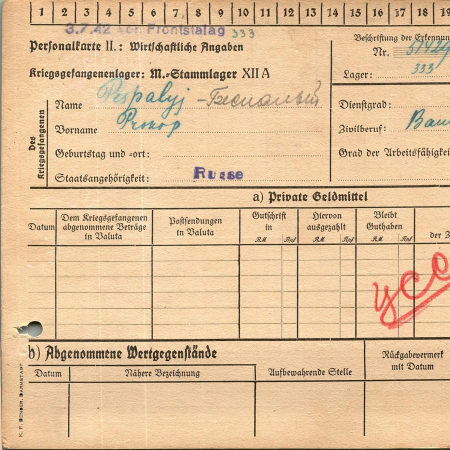 1 2 3 4 5 6 7 8 9 10 11 12 13 14 15 16 17 18 19
3.7.42 Frontstalag 333
Personalkarte II.: Wirtschaftliche Angaben
Beschriftung der Erkennun
Nr.
Kriegsgefangenenlager: M.-Stammlager XII A
Lager: 333
Des Kriegsgefangenen
Name Bespalyj - Беспалый
Dienstgrad:
Vorname Prokop
Zivilberuf: Bau
Geburtstag und -ort:
Grad der Arbeitsfähigkei
Staatsangehörigkeit: Russe
a) Private Geldmittel
Datum
Dem Kriegsgefangenen abgenommene Beträge in Valuta
Postsendungen in Valuta
Gutschrift in
RM Rpf
Hiervon ausgezahlt
RM Rpf
Bleibt Guthaben
RM Rpf
der Z
УСО
b) Abgenommene Wertgegenstände
Datum
Nähere Bezeichnung
Aufbewahrende Stelle
Rückgabevermerk mit Datum